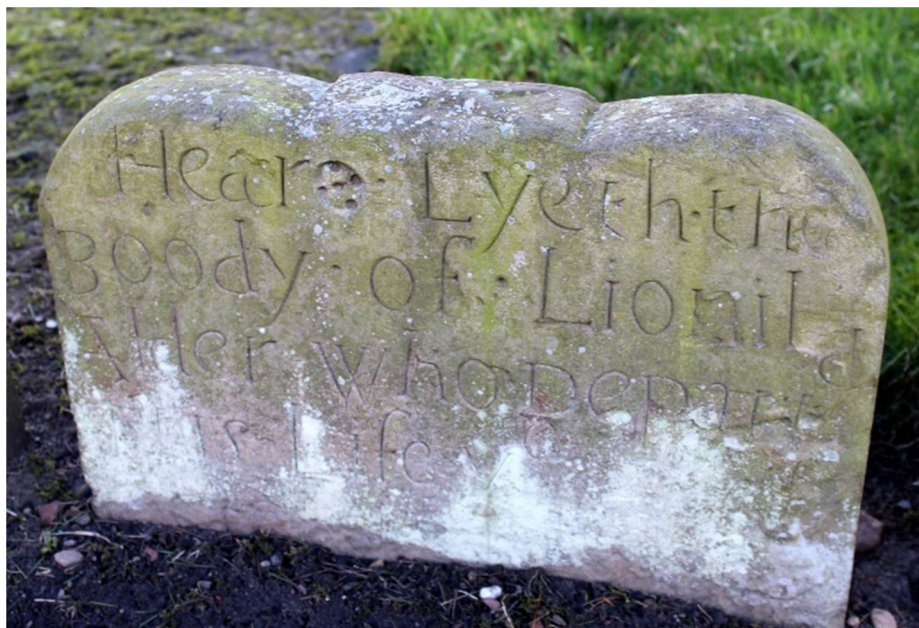 Heare Lyeth the
Boody of Lionil
Aller who Departed
This Life ye